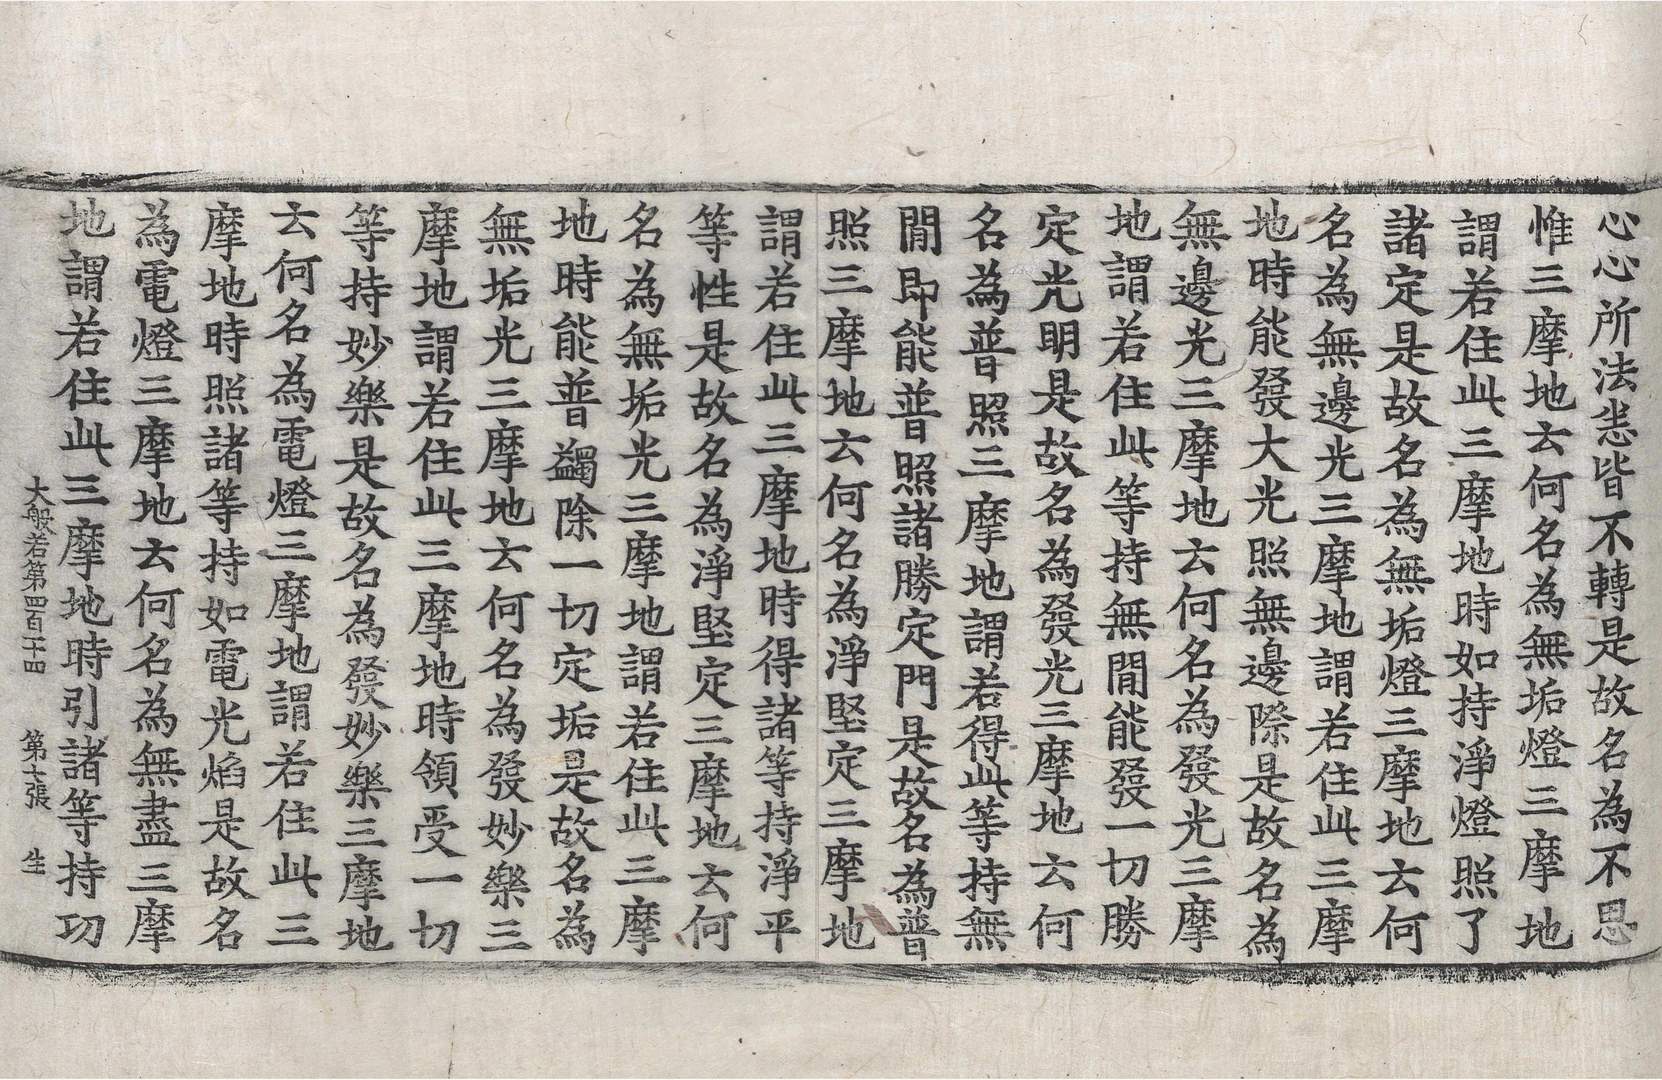 心心所法恚皆不轉是故名為不思
惟三摩地云何名為無垢燈三摩地
謂若住此三摩地時如持淨燈照了
諸定是故名為無垢燈三摩地云何
名為無邊光三摩地謂若住此三摩
地時能發大光照無邊際是故名為
無邊光三摩地云何名為發光三摩
地謂若住此等持無間能發一切勝
定光明是故名為發光三摩地云何
名為普照三摩地謂若得此等持無
間即能普照諸勝定門是故名為普
照三摩地云何名為淨堅定三摩地
謂若住此三摩地時得諸等持淨平
等性是故名為淨堅定三摩地云何
名為無垢光三摩地謂若住此三摩
地時能普蠲除一切定垢是故名為
無垢光三摩地云何名為發妙樂三
摩地謂若住此三摩地時領受一切
等持妙樂是故名為發妙樂三摩地
云何名為電燈三摩地謂若住此三
摩地時照諸等持如電光焰是故名
為電燈三摩地云何名為無盡三摩
地謂若住此三摩地時引諸等持功
大般若第四百十四 第七張 生